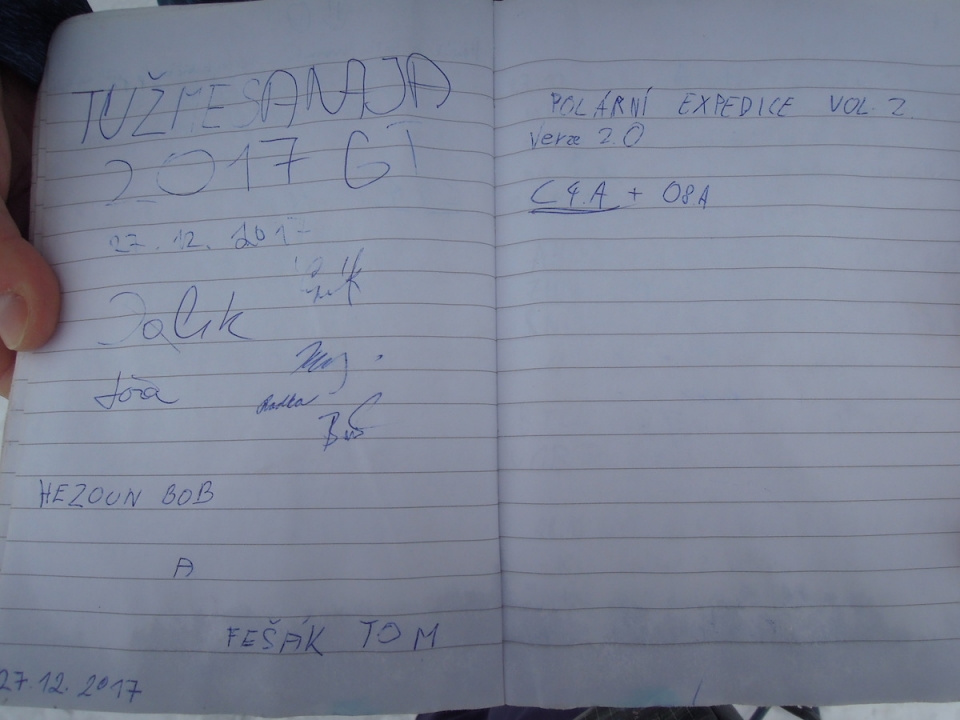 TUŽMESANAJA
2017 GT
27.12.2017
Dalik
Jořa
Radka
HEZOUN BOB
A
FEŠÁK TOM
27.12.2017
POLÁRNÍ EXPEDICE VOL. 2.
Verze 2.0
C4.A + O8A